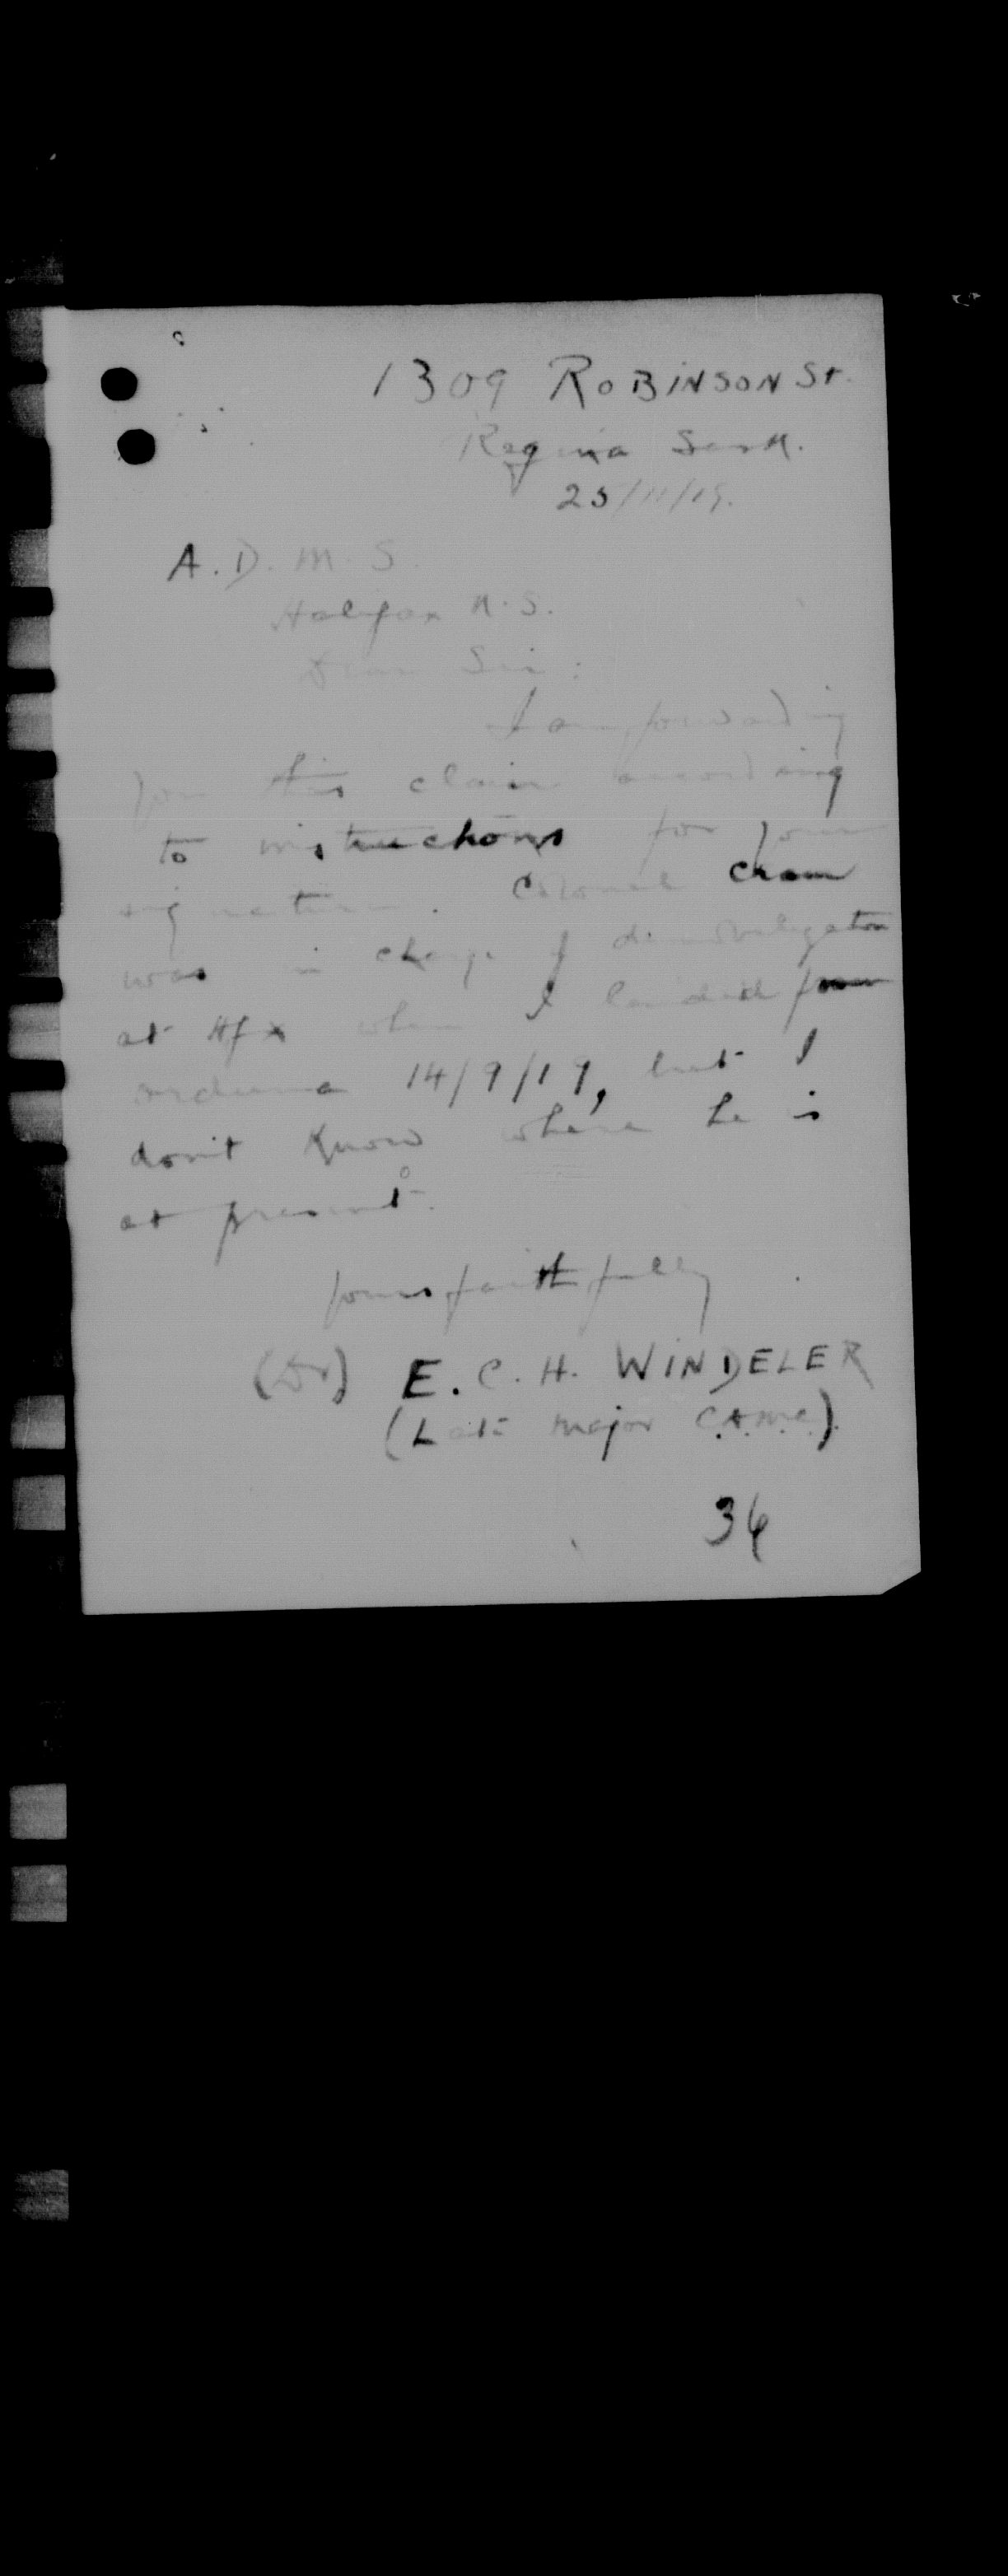 1309 ROBINSON St.
Regina Sask.
25/11/19.
A. D. M. S.
Halifax N. S.
Dear Sir:
I am forwarding
you this claim according
to instructions for your
signature. Colonel
was in charge of demobilization
at Hfx when I landed from
14/9/19, but I
don't know where he is
at present.
Yours faithfully
(Dr) E. C. H. WINDELER
(Late Major C.A.M.C.)
34